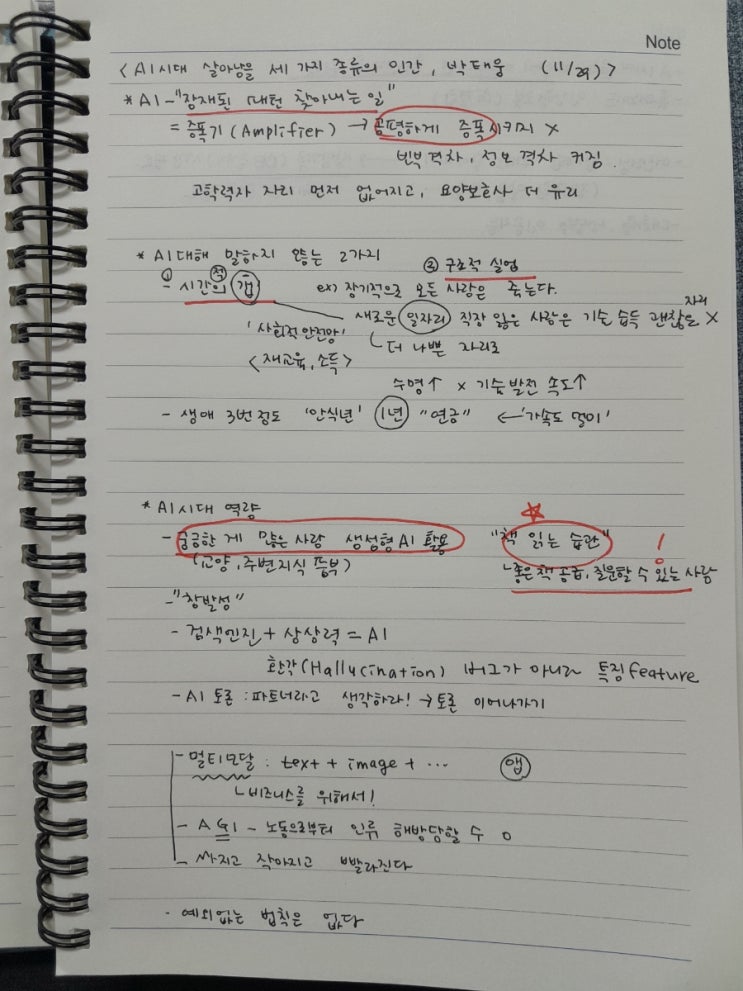 Note
<AI시대 살아남을 세 가지 종류의 인간, 박태웅 (11/29)>
* AI - "잠재된 패턴 찾아내는 일"
= 증폭기(Amplifier) → 공평하게 증폭시키지 X
빈부격차, 정보 격차 커짐.
고학력자 자리 먼저 없어지고, 요양보호사 더 유리
* AI대해 말하지 않는 2가지
② 구조적 실업
① - 시간의 적 갭 ex) 장기적으로 모든 사람은 죽는다.
새로운 일자리 직장 잃은 사람은 기술 습득 괜찮은 자리 X
'사회적 안전망' ㄴ더 나쁜 자리로
<재교육, 소득>
수명↑ X 기술발전 속도↑
- 생애 3번 정도 '안식년' 1년 "연금" ← '가속도 멀미'
* AI시대 역량
- 궁금한 게 많은 사람 생성형AI 활용 "책 읽는 습관" !
(교양, 주변지식 풍부) ㄴ좋은 책 공급, 질문할 수 있는 사람
- "창발성"
- 검색엔진 + 상상력 = AI
환각(Hallucination) 버그가 아니라 특징 feature
- AI 토론 : 파트너라고 생각하라! → 토론 이어나가기
- 멀티모달 : text + image + ··· 앱
ㄴ비즈니스를 위해서!
- AGI - 노동으로부터 인류 해방당할 수 o
- 싸지고 작아지고 빨라진다
- 예외없는 법칙은 없다